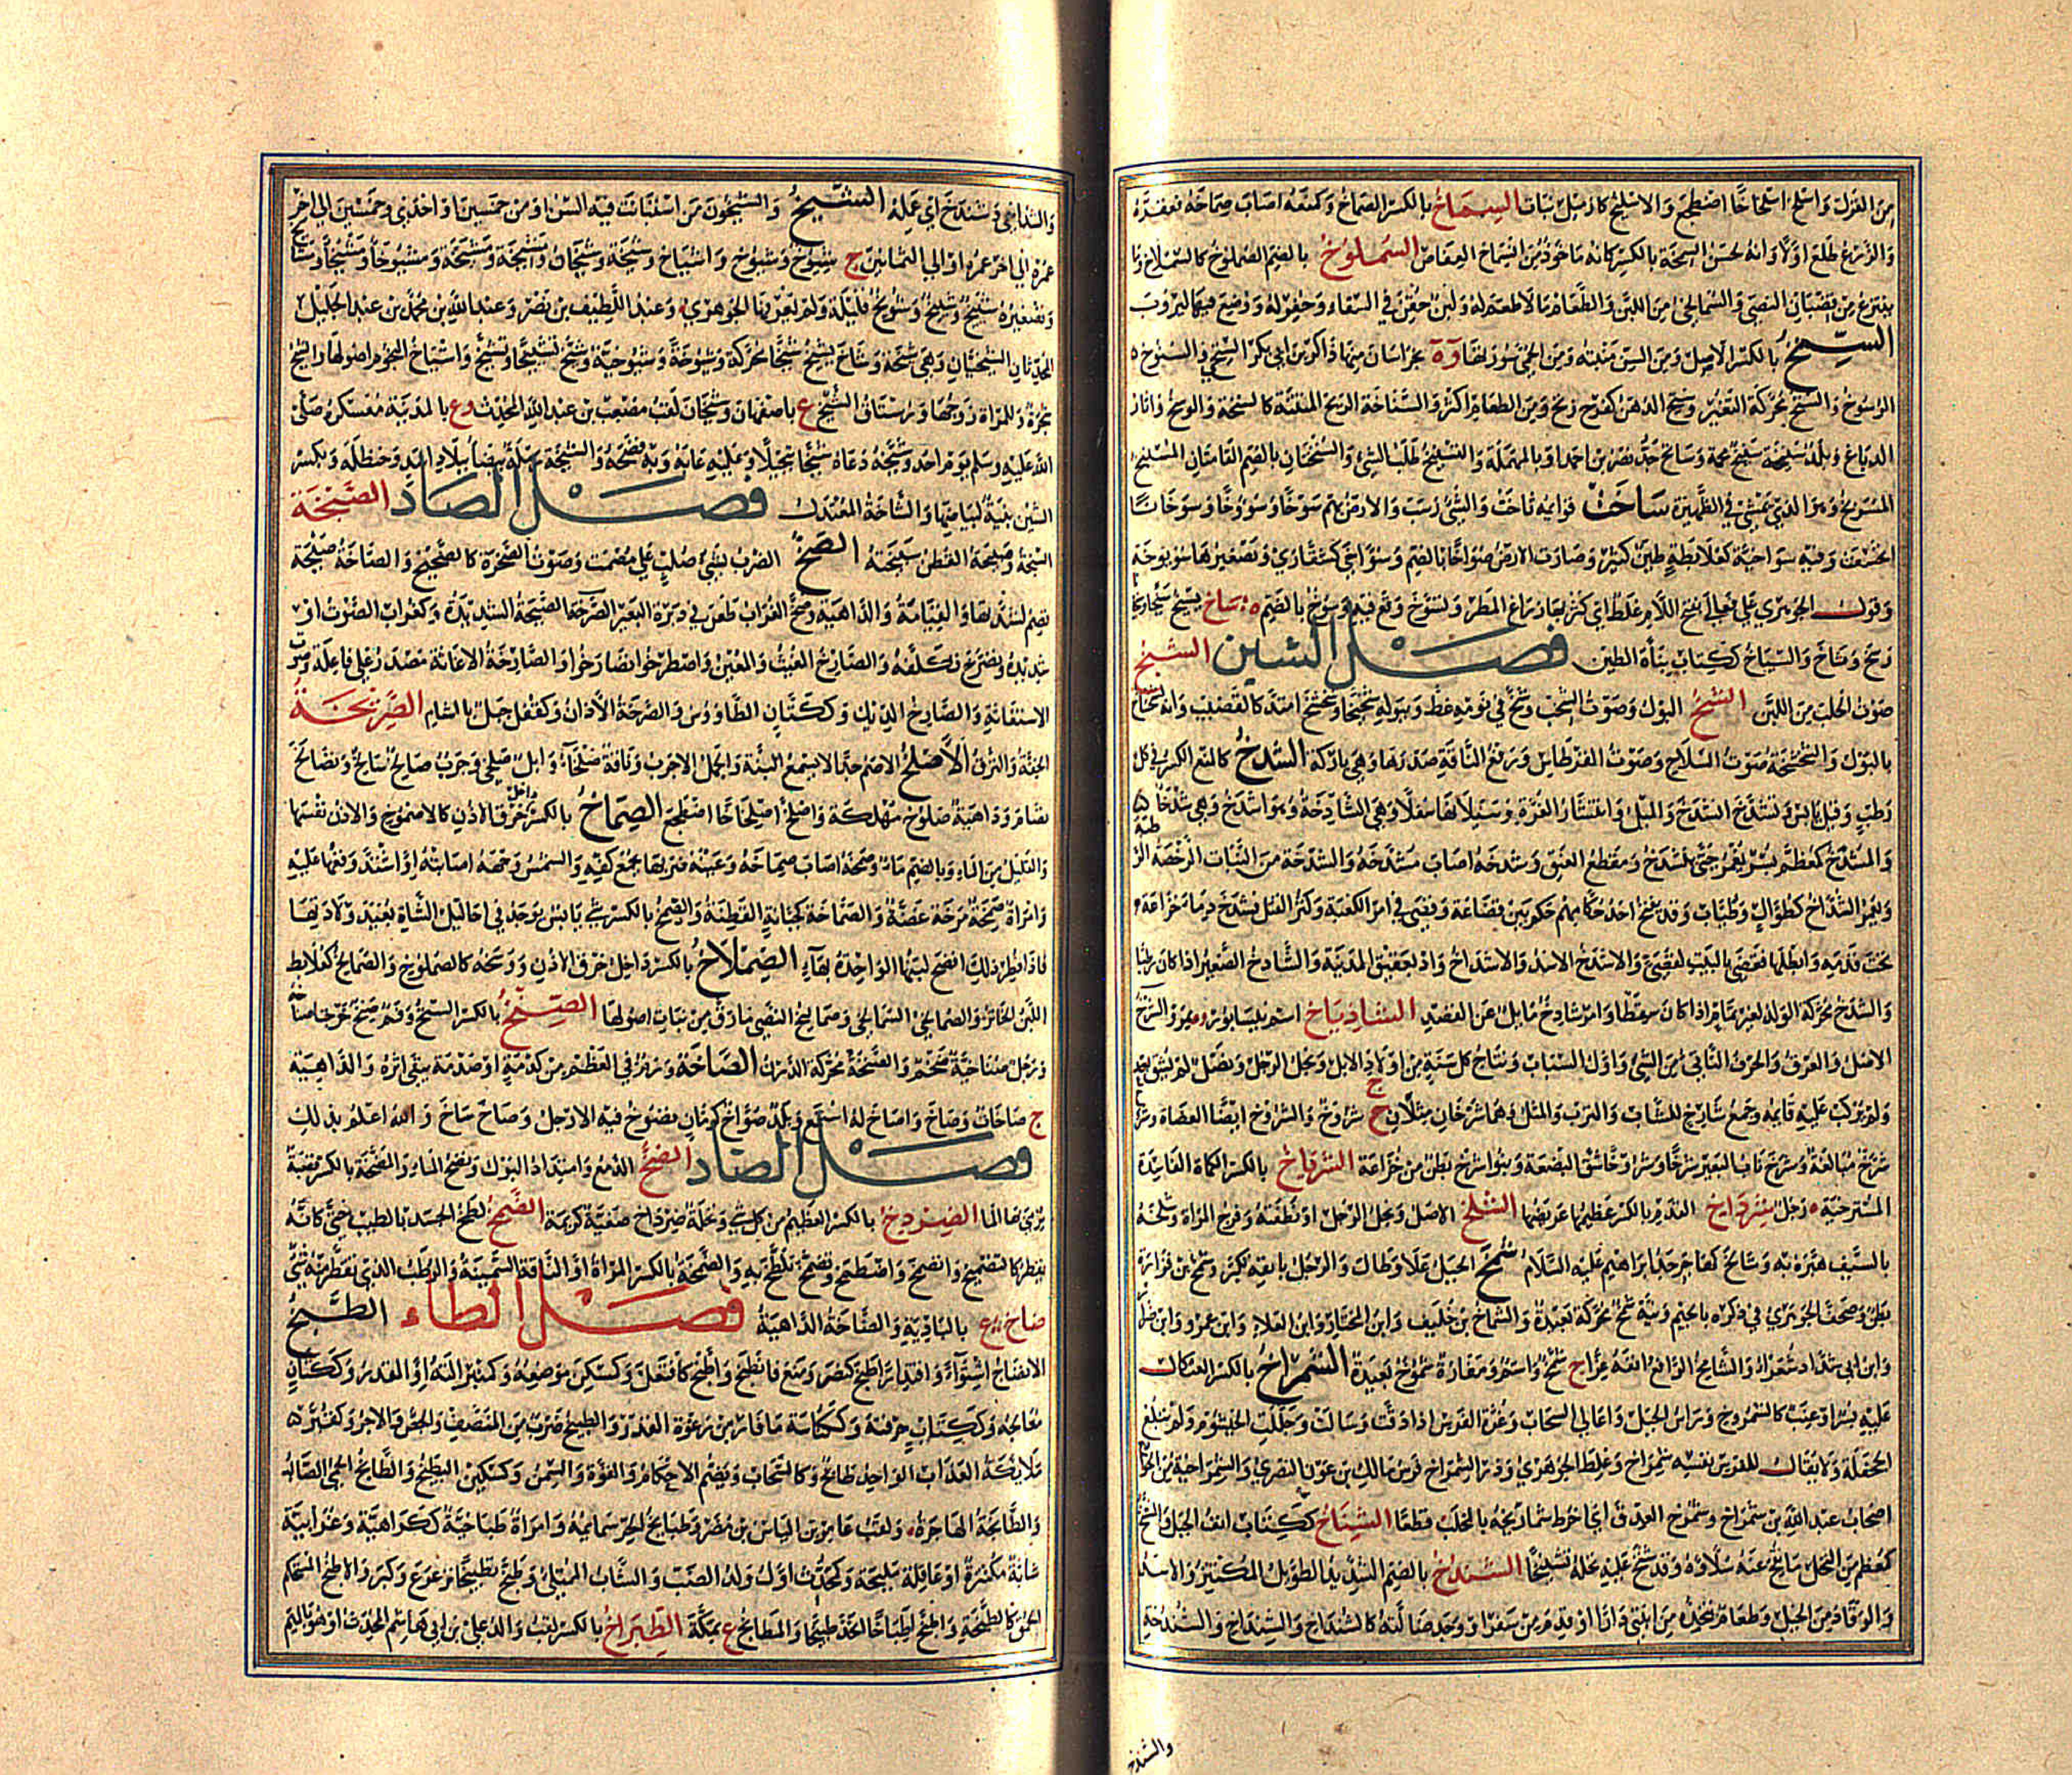 من الغزل واسلخ اسلخاخا اضطجع والاسليخ كازميل نبات السماخ بالكسر الصماخ وكمنعه اصاب صماخه فعقره
والزرع طلع اولا وانه لحسن السمخة بالكسر كانه ماخوذ من السماخ العفاص السملوخ بالضم الصملوخ كالسملاخ وما
ينتزع من قضبان النصي والسمالخي من اللبن والطعام ما لا طعم له ولبن حقن في السقاء وحفر له ووضع فيها ليروب
السنخ بالكسر الاصل ومن السن منبته ومن الحمى سورتها وة بخراسان منها ذاكر بن ابي بكر السنخي والسنوخ
الرسوخ والسنخ محركة التغير وسنخ الدهن كفرح زنخ ومن الطعام اكثر والسناخة الريح المنتنة كالسنخة والوسخ واثار
الدباغ وبلد سنخة محمة وسانح جد نصر بن احمد او بالمهملة والتسنيخ طلب الشئ والسنختان بالضم القامتان المسنبخ
وهو الذي يمشي في الظهيرة ساخت قوائمه ثاخت والشئ رسب والارض بهم سوخا وسؤوخا وسوخانا
انخسفت وفيه سواخية كعلابطة طين كثير وصارت الارض سواخا بالضم وسواخى كشقارى وتصغيرها سويوخة
وقول الجوهري على فعالى بفتح اللام غلط اي كثر بها رداغ المطر وتسوخ وقع فيه وسوخ بالضم ة ساخ يسيخ سيخا وسيخانا
رسخ وثاخ والسياخ ككتاب بناة الطين فصل الشين الشبخ
صوت الحلب من اللبن الشخ البول وصوت الشخب وشخ في نومه غط وببوله شخيخا وشخشخ امتد كالقضيب وانه لشخاخ
بالبول والشخشخة صوت السلاح وصوت القرطاس ورفع الناقة صدرها وهي باركة الشدخ كالمنع الكسر في كل
رطب وقيل يابس وتشدخ انشدخ والميل وانتشار الغرة وسيلانها سفلا وهي الشادخة وهو اشدخ وهي شدخاء
والمشدخ كمعظم بسر يغمز حتى ينشدخ ومقطع العنق وشدخه اصاب مشدخه والشدخة من النبات الرخصة الرطبة
ويعمر الشداخ كطوال وطياب وقد يفتح احد حكامهم حكم بين قضاعة وقصي في امر الكعبة وكثر القتل فشدخ دماء خزاعة
تحت قدمه وابطلها فقضى بالبيت لقصي والاشدخ الاسد والاشداخ واد بعقيق المدينة والشادخ الصغير اذا كان رطبا
والشدخ محركة الولد لغير تمام اذا كان سقطا وامر شادخ مايل عن القصد الشاذياخ اسم نيسابور وة بمرو الشرخ
الاصل والعرق والحرف الناتئ من الشئ واول الشباب ونتاج كل سنة من اولاد الابل ونجل الرجل ونصل لم يسق بعد
ولم يركب عليه قائمه وجمع شارخ للشاب والترب والمثل وهما شرخان مثلان ج شروخ والشروخ ايضا العضاه وشرخ
شرخ مبالغة وشرخ ناب البعير شرخا وشروخا شق البضعة وبنو شرخ بطن من خزاعة الشرياخ بالكسر الكماة الفاسدة
المسترخية رجل شرداخ القدم بالكسر عظيمها عريضها الشلخ الاصل ونجل الرجل او نطفته وفرج المراة وشلخه
بالسيف هبره به وشالخ كهاجر جد ابراهيم عليه السلام شمخ الجبل علا وطال والرجل بانفه تكبر وشمخ بن فزارة
بطن وصحف الجوهري في ذكره بالجيم ونية شمخ محركة بعيدة والشماخ بن خليف وابن المختار وابن العلاء وابن عمرو وابن ضرار
وابن ابي شداد شعراء والشامخ الرافع انفه عزا ج شمخ واسم ومفازة شموخ بعيدة الشمراخ بالكسر العثكال
عليه بسر او عنب كالشمروخ وراس الجبل واعالي السحاب وغرة الفرس اذا دقت وسالت وجللت الخيشوم ولم تبلغ
الجحفلة ولا يقال للفرس نفسه شمراخ وغلط الجوهري وذو الشمراخ فرس مالك بن عون النصري والشمراخية من الخوارج
اصحاب عبد الله بن شمراخ وشمرخ العذق اي اخرط شماريخه بالمخلب قطعا الشناخ ككتاب انف الجبل والمشنخ
كمعظم من النخل ما نقح عنه سلاؤه وقد شنخ عليه نخله تشنيخا الشنداخ بالضم الشديد الطويل المكتنز والاسد
والوقاد من الخيل وطعام يتخذه من ابتنى دارا او قدم من سفر او وجد ضالته كالشنداخ والشنداخ والشندخة
والشندخ
والشنداخي وشندخ اي عمله الشيخ والشيخون من استبانت فيه السن او من خمسين او احدى وخمسين الى اخر
عمره الى اخر عمره او الى الثمانين ج شيوخ وشيوخ واشياخ وشيخة وشيخان ومشيخة ومشيخة ومشيوخاء ومشيخاء ومشايخ
وتصغيره شييخ وشييخ وشويخ قليلة ولم يعرفها الجوهري وعبد اللطيف بن نصر وعبد الله بن محمد بن عبد الجليل
المحدثان الشيخيان وهي شيخة وشاخ يشيخ شيخا محركة وشيوخة وشيوخية وشيخ تشييخا وتشيخ واشياخ النجوم اصولها والشيخ
شجرة وللمراة زوجها ورستاق الشيخ ع باصفهان وشيخان لقب مصعب بن عبد الله المحدث وع بالمدينة معسكره صلى
الله عليه وسلم يوم احد وشيخه دعاه شيخا تبجيلا وعليه عابه وبه فضحه والشيخة رملة بيضاء ببلاد اسد وحنظلة وبكسر
الشين بنية لبياضها والشاخة المعتدل فصل الصاد الصبخة
السبخة وصبيخة القطن سبيخته الصخ الضرب بشئ صلب على مصمت وصوت الصخرة كالصخيخ والصاخة صيحة
تصم لشدتها والقيامة والداهية وصخ الغراب طعن في دبرة البعير الصرخة الصيحة الشديدة وكغراب الصوت او
شديده وتصرخ تكلفه والصارخ المغيث والمستغيث واصطرخوا تصارخوا والصارخة الاغاثة مصدر على فاعلة وصوت
الاستغاثة والصارخ الديك وككتان الطاووس والصرخة الاذان وكقفل جبل بالشام الصربخة
الخفة والنزق الاصلخ الاصم جدا لا يسمع البتة والجمل الاجرب وناقة صلخاء وابل صلخى وجرب صالخ سالخ وتصالخ
تصامم وداهية صلوخ مهلكة واصلخ اصلخاخا اضطجع الصماخ بالكسر خرق الاذن كالاصموخ والاذن نفسها
والقليل من الماء وبالضم ماء وصمخه اصاب صماخه وعينه ضربها بجمع كفه والشمس وجهه اصابته او اشتد وقعها عليه
وامراة صمخة كفرحة غضة والصماخة كجبانة القطنة والصمخ بالكسر شئ يابس يوجد في احاليل الشاة بعيد ولادتها
فاذا فطر ذلك افصح لبنها الواحدة بهاء الصملاخ بالكسر داخل خرق الاذن ووسخه كالصملوخ والصمالخ كعلابط
اللبن الخاثر والصمالخي السمالخي وصماليخ النصي ما رق من نبات اصولها الصنخ بالكسر السنخ وفم صنخ خرجت اصنانه
ورجل صناخية ضخم والصنخة محركة الدرن الصاخة ورم في العظم من كدمة او صدمة يبقى اثره والداهية
ج صاخات وصاخ واصاخ له استمع وبلد صواخ كرمان تصوخ فيه الارجل وصاخ ساخ والله اعلم بذلك
فصل الضاد الضخ الدمع وامتداد البول ونضخ الماء والمضخة بالكسر قصبة
يرمى بها الماء الضردخ بالكسر العظيم من كل شئ ونخلة ضرداخ صفية كريمة الضمخ لطخ الجسد بالطيب حتى كانه
يقطر كالتضميخ وانضمخ واضطمخ وتضمخ تلطخ به والضمخة بالكسر المراة او الناقة السمينة والرطب الذي يقطر منه شئ
ضاخ ع بالبادية والضاخة الداهية فصل الطاء الطبخ
الانضاج اشتواء واقتدارا طبخ كنصر ومنع فانطبخ واطبخ كافتعل وكمسكن موضعه وكمنبر الته او القدر وككتان
معالجه وككتاب حرفته وككناسة ما فار من رغوة القدر والطبيخ ضرب من المنصف والجص والاجر وكقبر
ملائكة العذاب الواحد طابخ وكالسحاب ويضم الاحكام والقوة والسمن وكسكين البطيخ والطابخ الحمى الصالب
والطابخة الهاجرة ولقب عامر بن الياس بن مضر وطبايخ الحر سمايمه وامراة طباخية ككراهية وغرابية
شابة مكتنزة او عاقلة مليحة وكمحدث اول ولد الضب والشاب الممتلئ وطبخ تطبيخا ترعرع وكبر والاطبخ المستحكم
الحمق كالطبخة واطبخ اطباخا اتخذ طبيخا والمطابخ ع بمكة الطبراخ بالكسر لقب والد علي بن ابي هاشم المحدث او هو بالميم